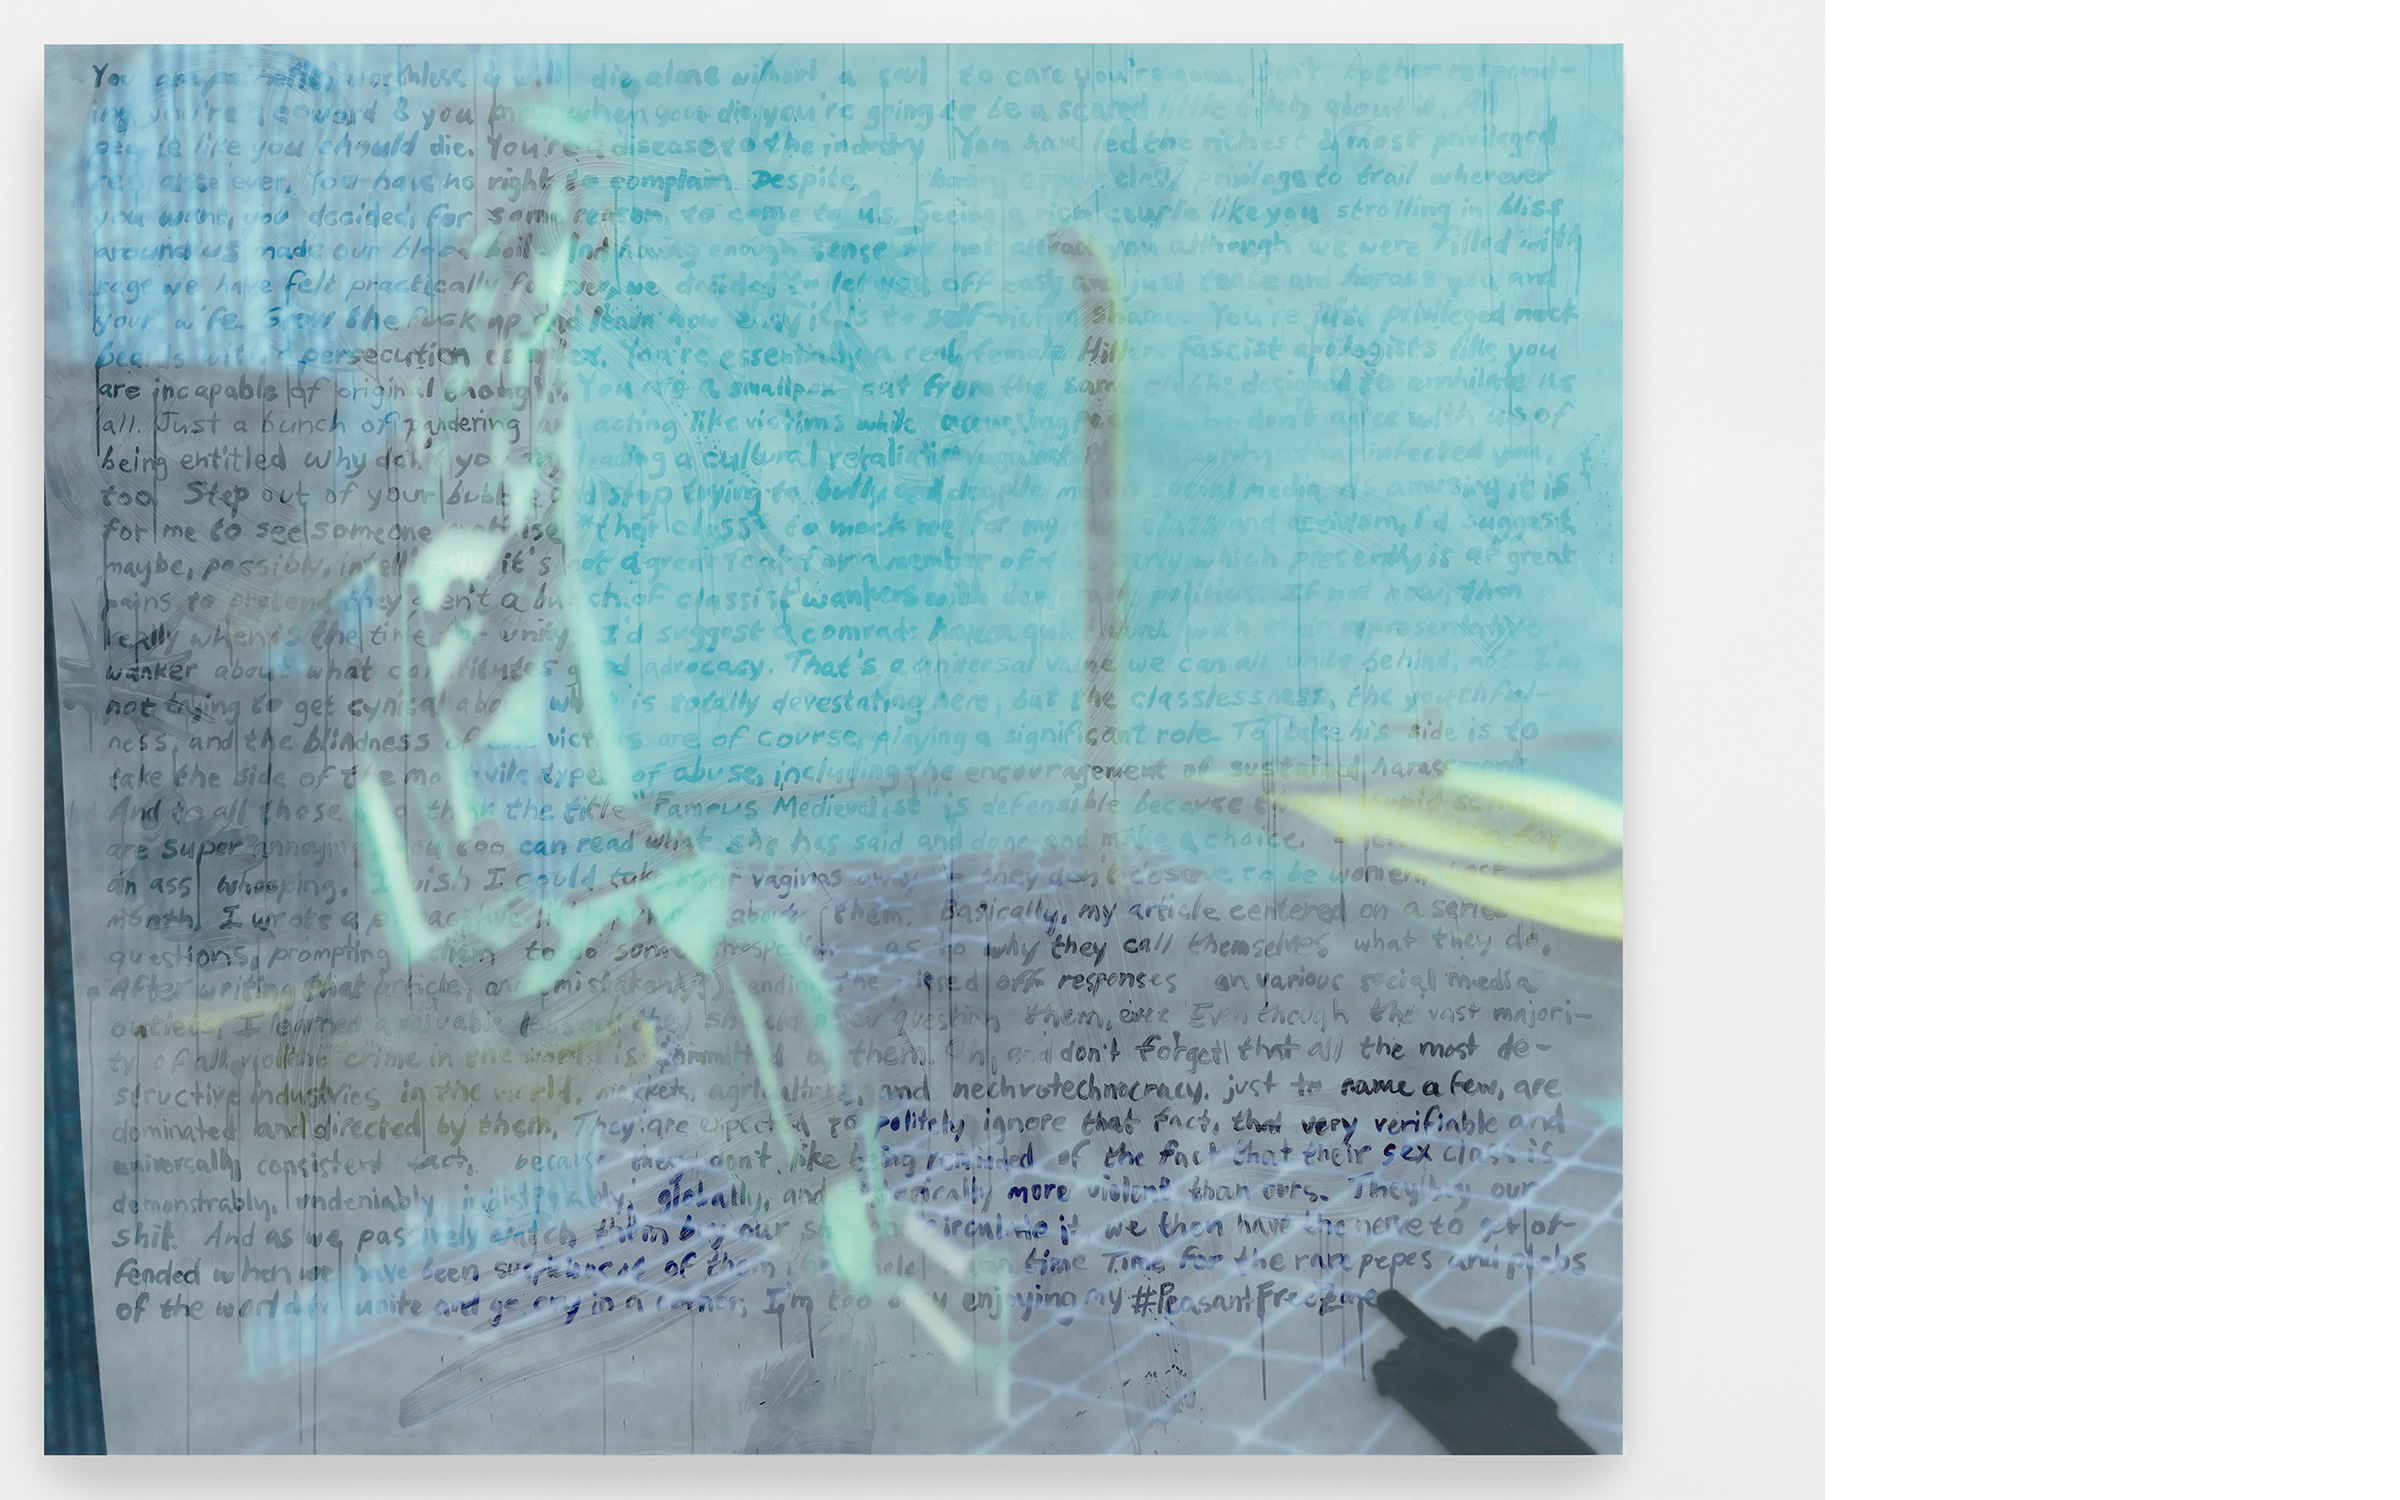 You are pathetic, worthless & will die alone without a soul to care you're gone. Don't bother respond-
ing, you're a coward & you know when you die you're going to be a scared little bitch about it. All
people like you should die. You're a disease to the industry You have led the richest & most privileged
ever. You have no right to complain. Despite having upper class privilege to trail wherever
you want, you decided, for some reason, to come to us. Seeing a rich couple like you strolling in bliss
around us made our blood boil. And having enough sense to not attack you although we were filled with
rage we have felt practically forever, we decided to let you off easy and just tease and harass you and
your wife. Grow the fuck up and learn how easy it is to self-victim shame. You're just privileged neck
beards with a persecution complex. You're essentially a real female Hitler. Fascist apologists like you
are incapable of original thought. You are a smallpox cut from the same cloth: designed to annhilate us
all. Just a bunch of pandering and acting like victims while accusing people who don't agree with us of
being entitled Why don't you try leading a cultural retaliation against the that infected you,
too. Step out of your bubble and stop trying to bully and me on social media. As amusing it is
for me to see someone "their class" to mock me for my own class and I'd suggest,
maybe, possibly, it's not a great look for a member of the party which presently is at great
pains to pretend they aren't a bunch of classist wankers with deplorable politics. If not now, then
really when is the time for unity? I'd suggest a comrade have a quiet word with their representative
wanker about what constitutes good advocacy. That's a universal value we can all unite behind, no? I'm
not trying to get cynical about what is totally devestating here, but the classlessness, the youthful-
ness, and the blindness of victims are of course, playing a significant role. To take his side is to
take the side of the most vile types of abuse, including the encouragement of sustained harassment
And to all those who think the title "Famous Medievalist" is defensible because stupid
are super annoying you too can read what she has said and done and make a choice. for
an ass whooping. I wish I could take their vaginas away they don't deserve to be women. Last
month, I wrote a about them. Basically, my article centered on a series
questions, prompting them to do some introspection as to why they call themselves what they do.
After writing that article, and (mistakenly?) reading the pissed off responses on various social media
outlets, I learned a valuable lesson: they should never question them, ever. Even though the vast majori-
ty of all violent crime in the world is committed by them. Oh, and don't forget that all the most de-
structive industries in the world, markets, agriculture, and nechrotechnocracy, just to name a few, are
dominated and directed by them. They are expected to politely ignore that fact, that very verifiable and
universally consistent fact, because they don't like being reminded of the fact that their sex class is
demonstrably, undeniably, indisputably, globally, and historically more violent than ours. They buy our
shit. And as we passively watch them buy our shit and circulate it we then have the nerve to get of-
fended when we have been suspicious of them the whole damn time Time for the rare pepes and plebs
of the world to unite and go cry in a corner; I'm too busy enjoying my #PeasantFreeZone